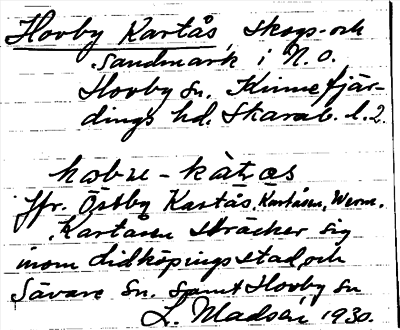 Hovby Kartås, Skogs- och
sandmark i N.O.
Hovby sn. Kinnefjär-
dings hd. Skarab. l. 2.
Jfr. Östby Kartås, Kartåsen, Werm.
Kartåsen sträcker sig
inom Lidköpings stad, och
Sävare sn. samt Hovby sn
L. Madsén 1930.